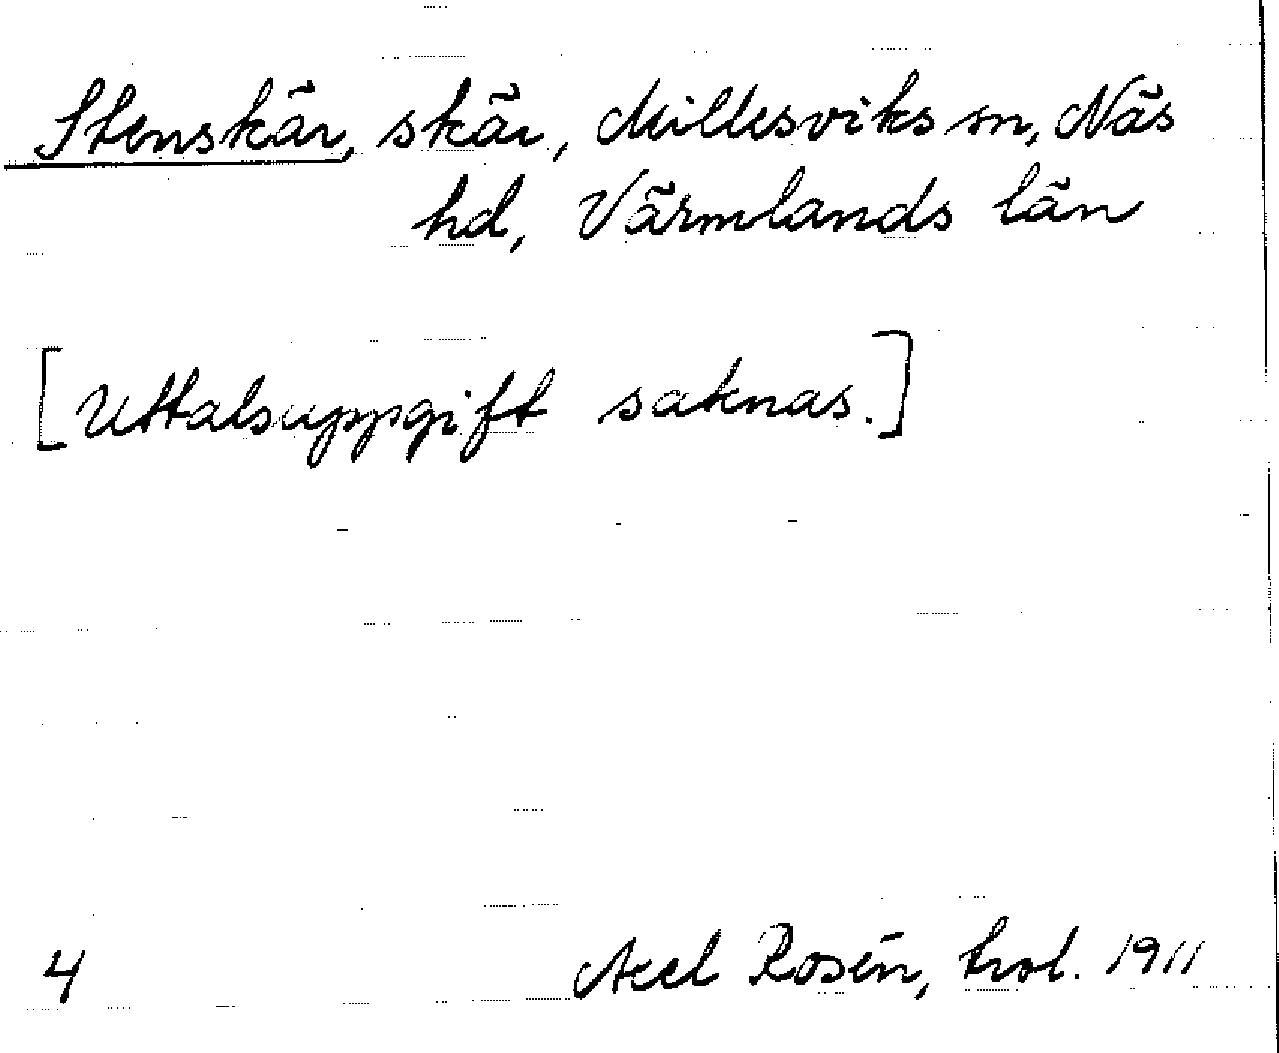 Stenskär, skär, Millesviks sn, Näs
hd, Värmlands län
[Uttalsuppgift saknas.]
4 Axel Rosén, trol. 1911